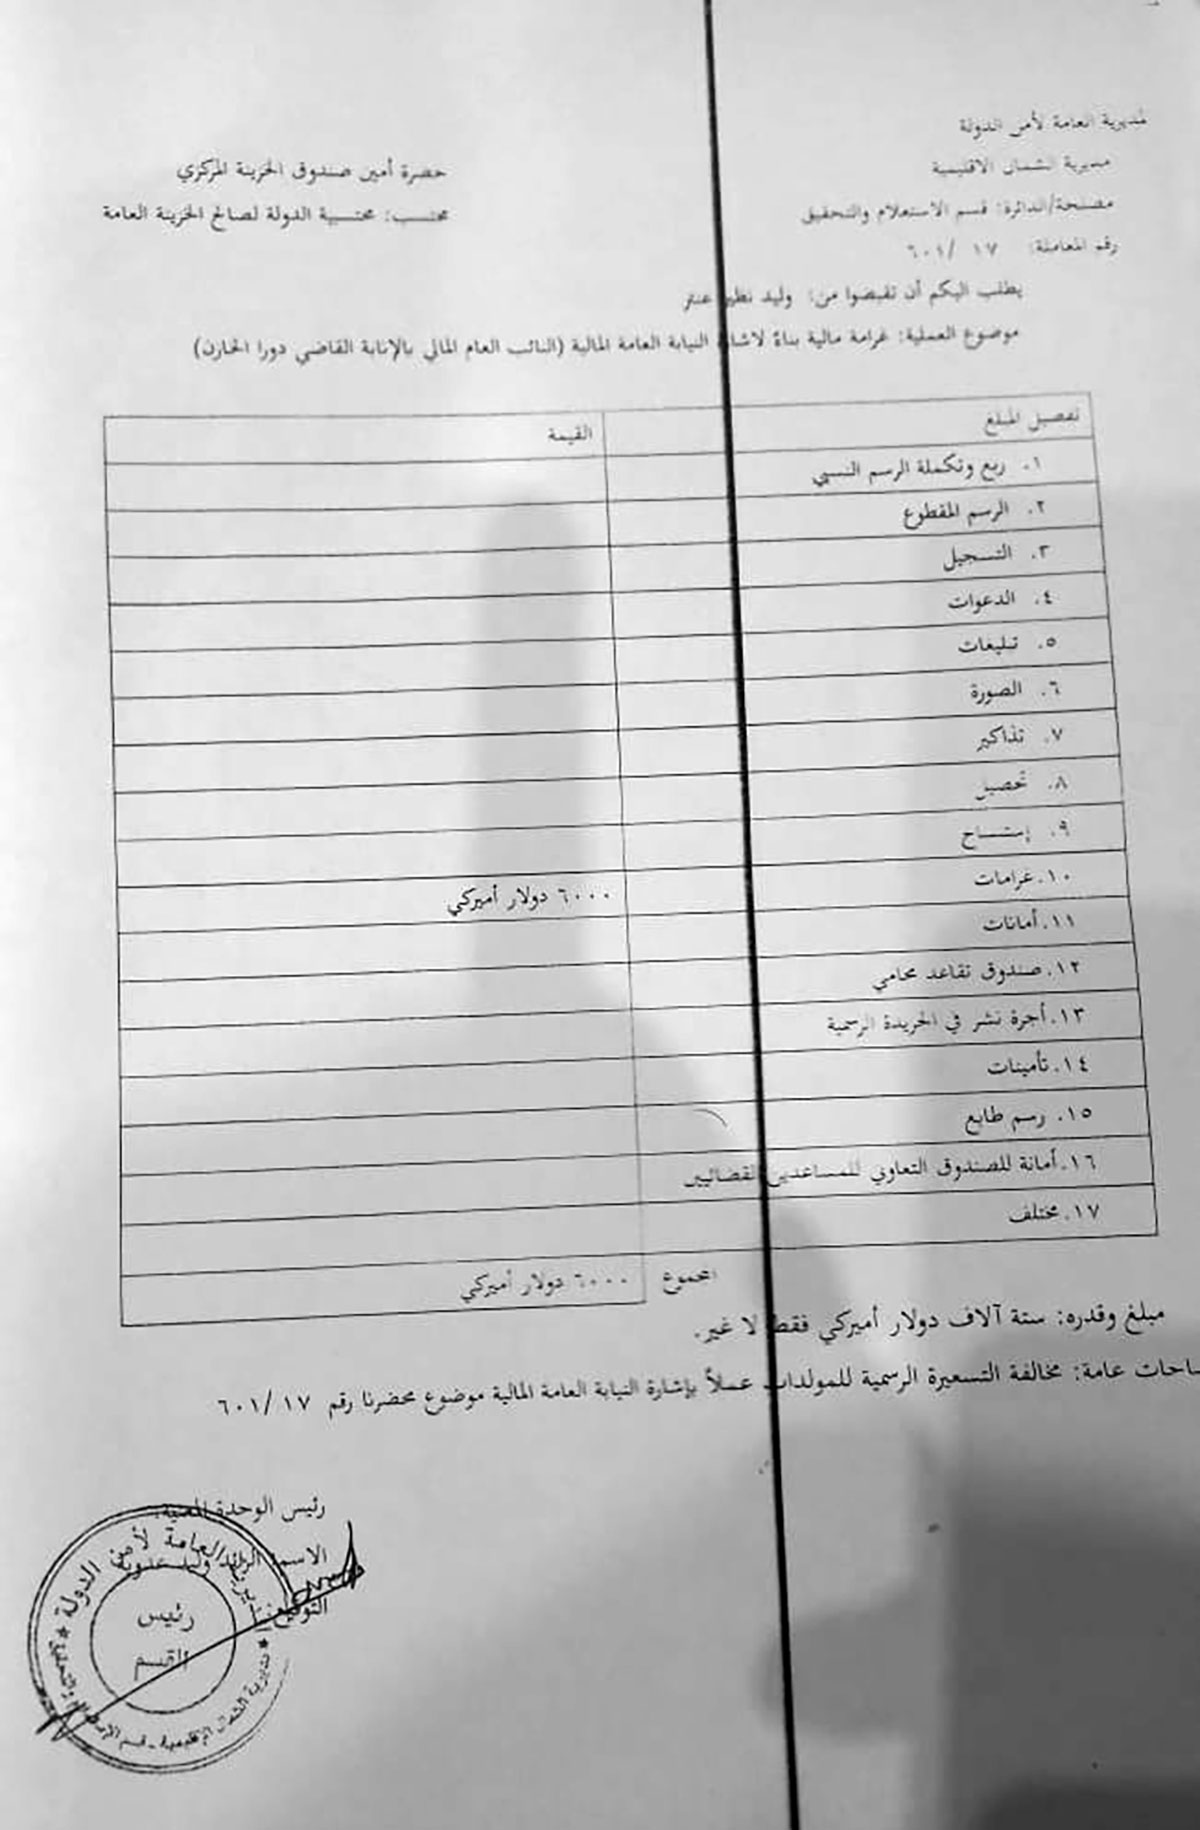 المديرية العامة لأمن الدولة
مديرية الشمال الاقليمية
مصلحة/الدائرة: قسم الاستعلام والتحقيق
رقم المعاملة: ١٧ /٦٠١
حضرة أمين صندوق الخزينة المركزي
محتسب: محتسبية الدولة لصالح الخزينة العامة
يطلب اليكم أن تقبضوا من: وليد نظير عنتر
موضوع العملية: غرامة مالية بناءً لاشارة النيابة العامة المالية (النائب العام المالي بالإنابة القاضي دورا الخازن)
تفصيل المبلغ القيمة
١. ربع وتكملة الرسم النسبي
٢. الرسم المقطوع
٣. التسجيل
٤. الدعوات
٥. تبليغات
٦. الصورة
٧. تذاكير
٨. تحصيل
٩. إستنساخ
١٠. غرامات ٦٠٠٠ دولار أميركي
١١. أمانات
١٢. صندوق تقاعد محامي
١٣. أجرة نشر في الجريدة الرسمية
١٤. تأمينات
١٥. رسم طابع
١٦. أمانة للصندوق التعاوني للمساعدين القضائيين
١٧. مختلف
المجموع ٦٠٠٠ دولار أميركي
مبلغ وقدره: ستة آلاف دولار أميركي فقط لا غير.
ساحات عامة: مخالفة التسعيرة الرسمية للمولدات عملاً بإشارة النيابة العامة المالية موضوع محضرنا رقم ١٧ /٦٠١
رئيس الوحدة المعنية:
الاسم: الرائد وليد
التوقيع:
المديرية العامة لأمن الدولة
رئيس
القسم
مديرية الشمال الإقليمية - قسم الإستعلام والتحقيق